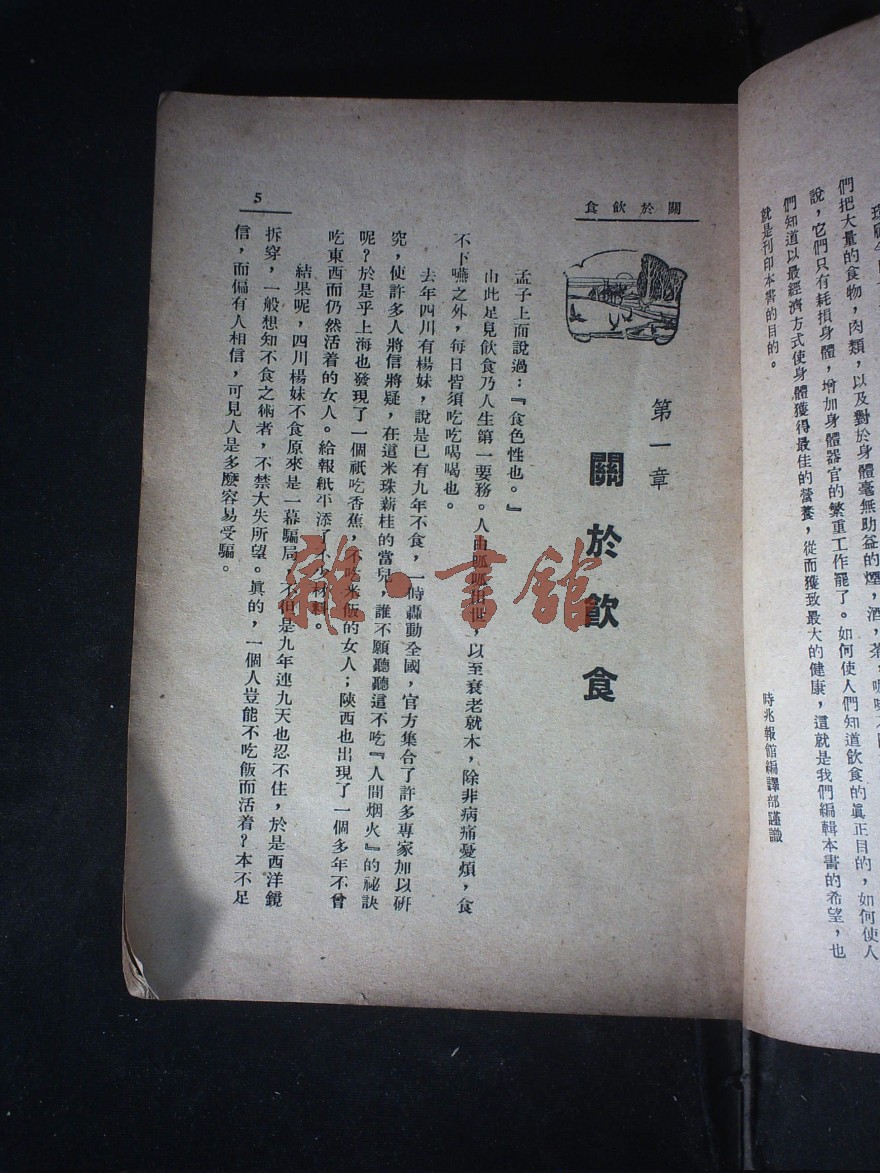 們把大量的食物，肉類，以及對於身體毫無助益的煙，酒，茶，
說，它們只有耗損身體，增加身體器官的繁重工作罷了。如何使人們知道飲食的眞正目的，如何使人
們知道以最經濟方式使身體獲得最佳的營養，從而獲致最大的健康，這就是我們編輯本書的希望，也
就是刊印本書的目的。
時兆報館編譯部謹識
關於飲食
第一章
關於飲食
孟子上面說過：『食色性也。』
由此足見飲食乃人生第一要務。人由呱呱出世，以至衰老就木，除非病痛憂煩，食
不下嚥之外，每日皆須吃吃喝喝也。
去年四川有楊妹，說是已有九年不食，一時轟動全國，官方集合了許多專家加以研
究，使許多人將信將疑，在這米珠薪桂的當兒，誰不願聽聽這不吃『人間烟火』的祕訣
呢？於是乎上海也發現了一個祇吃香蕉，不吃米飯的女人；陝西也出現了一個多年不曾
吃東西而仍然活着的女人。給報紙平添了不少材料。
結果呢，四川楊妹不食原來是一幕騙局，不但是九年連九天也忍不住，於是西洋鏡
拆穿，一般想知不食之術者，不禁大失所望。眞的，一個人豈能不吃飯而活着？本不足
信，而偏有人相信，可見人是多麽容易受騙。
5
雜·書館